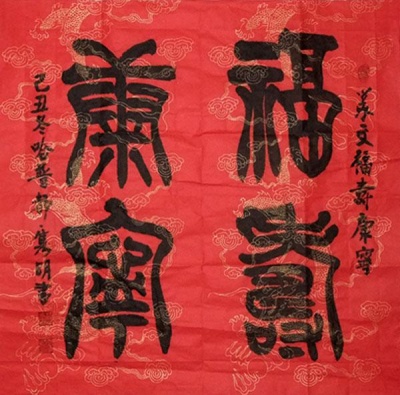 美文福寿康寧
福壽
康寧
己丑冬哈普都隽明書